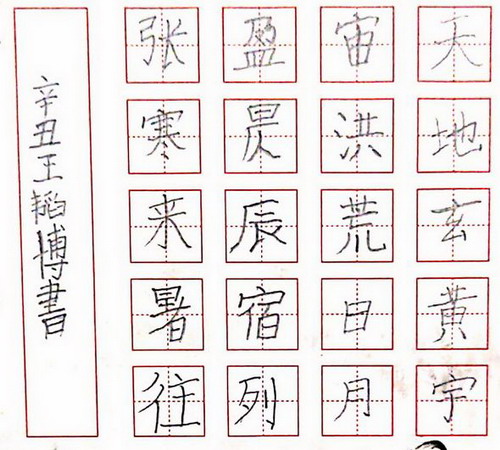 天地玄黄宇
宙洪荒日月
盈昃辰宿列
张寒来暑往
辛丑王韬博書